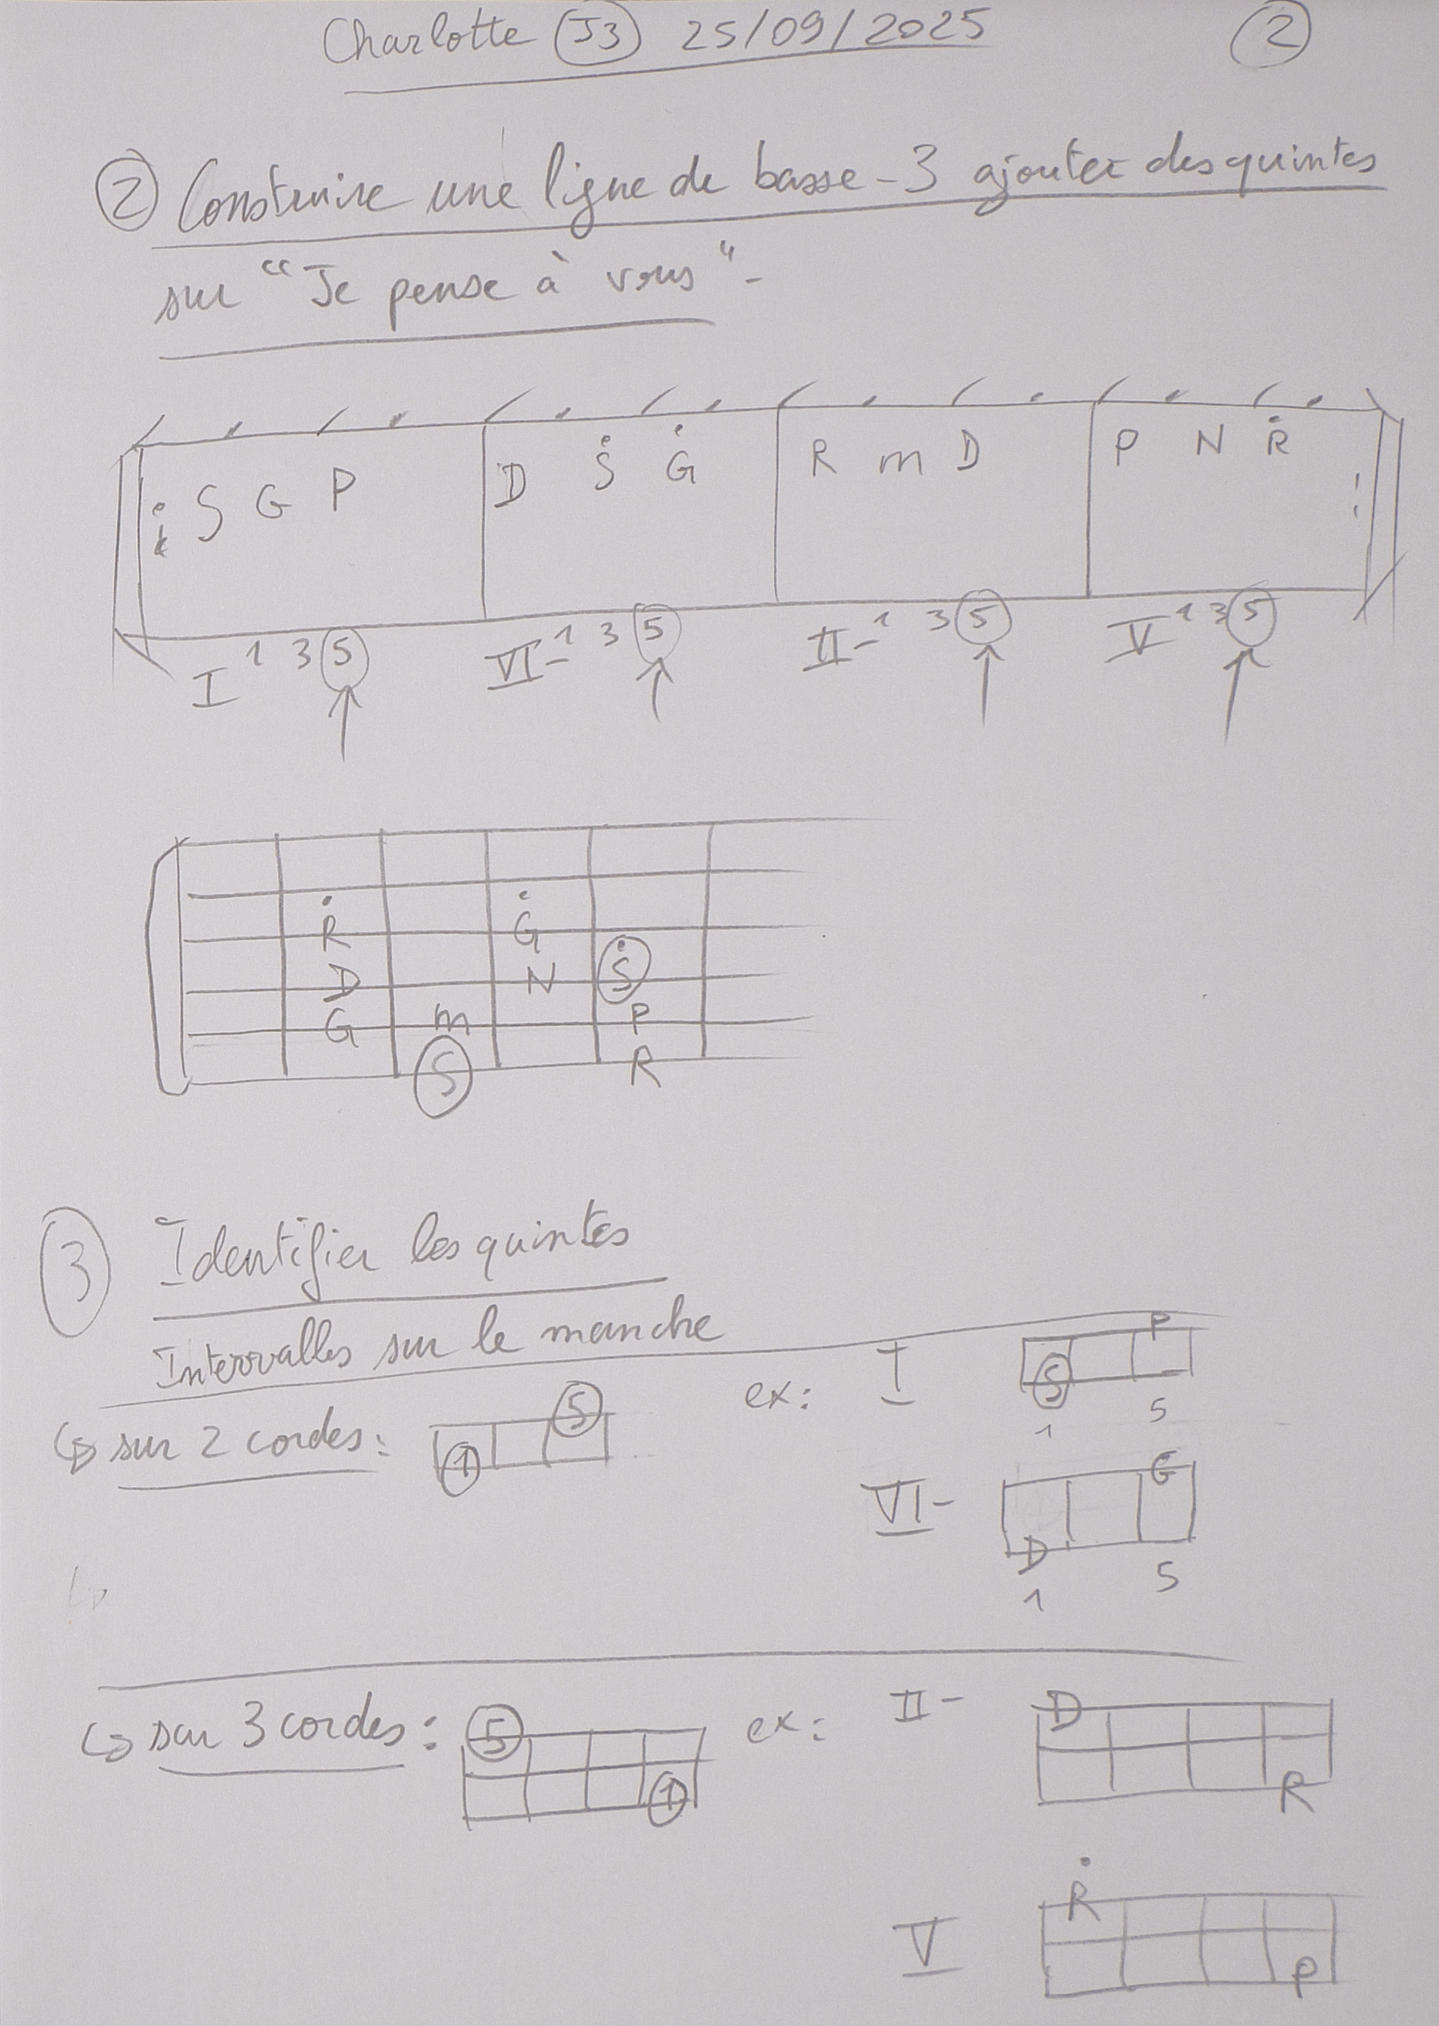 Charlotte J3 25/09/2025 2
2 Construire une ligne de basse - 3 ajouter des quintes
sur "Je pense à vous" -
S G P D Ṡ Ġ R m D P N Ṙ
I 1 3 5 VI- 1 3 5 II- 1 3 5 V 1 3 5
Ṙ Ġ
D N Ṡ
G m P
S R
3 Identifier les quintes
Intervalles sur le manche
↳ sur 2 cordes : 1 5 ex : I S P
1 5
VI- D G
1 5
↳ sur 3 cordes : 5 1 ex : II- D R
V Ṙ P